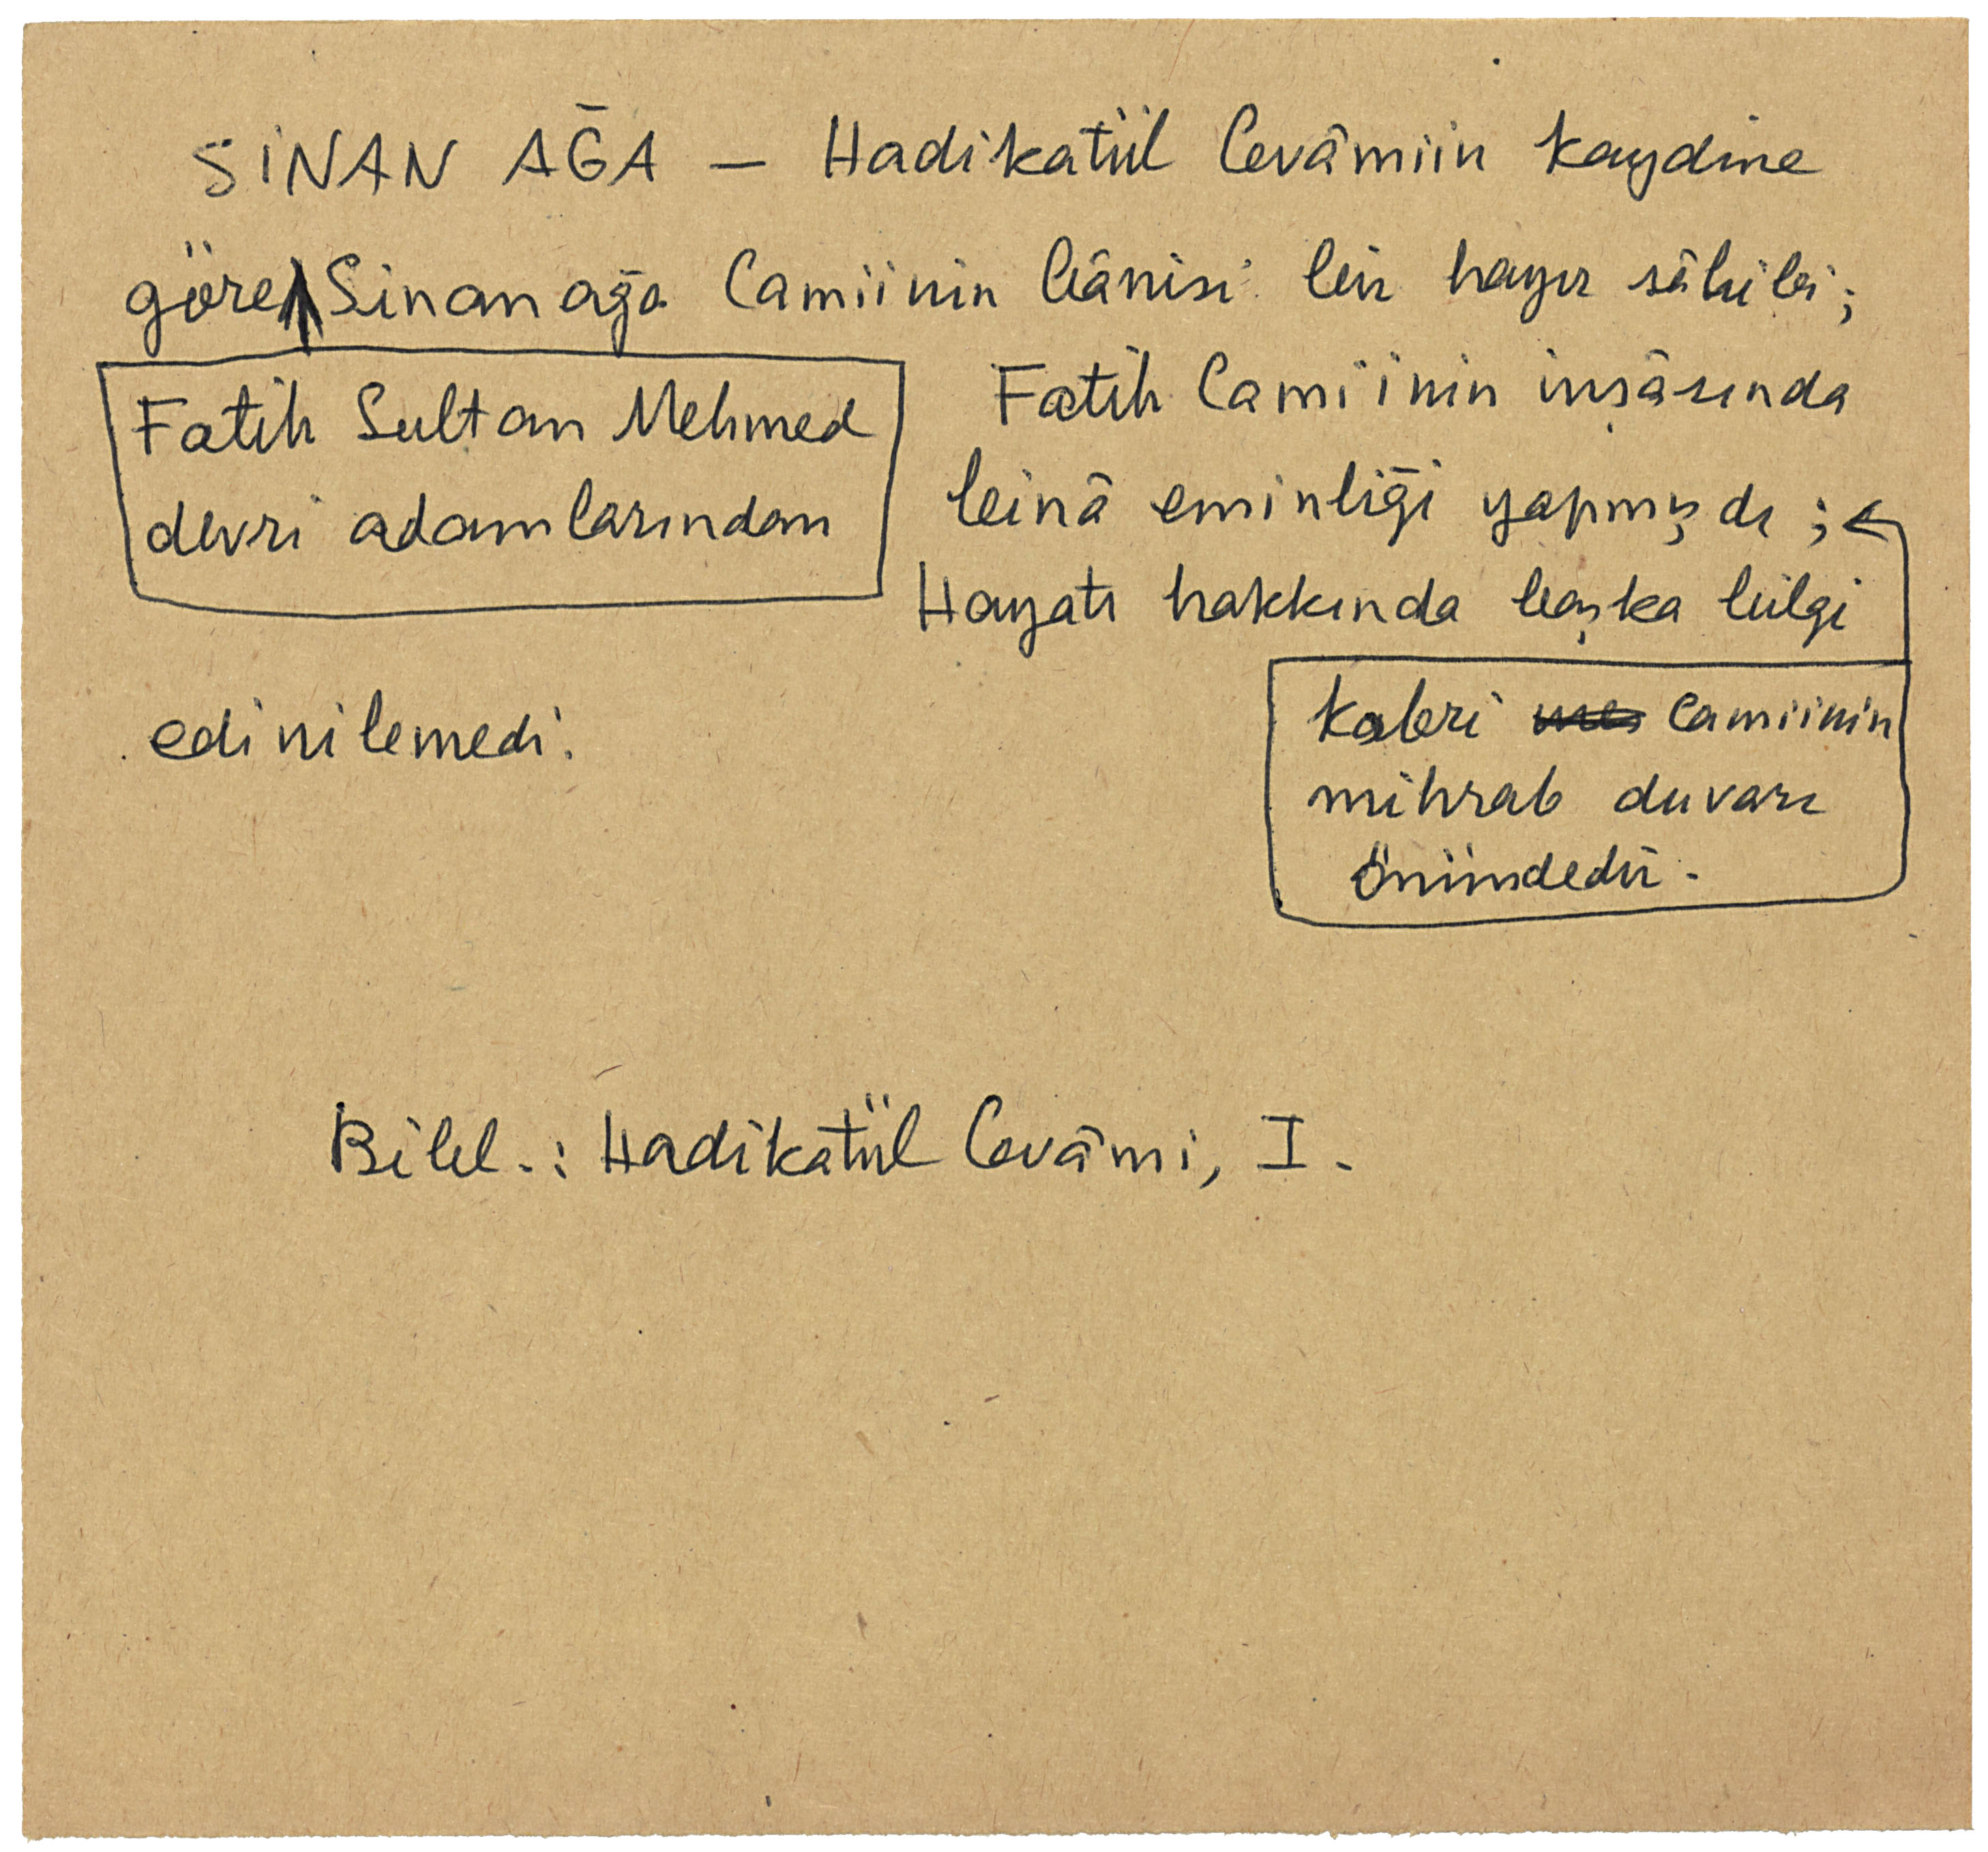 SİNAN AĞA — Hadikatül Cevâmiin kaydine
göre Sinanağa Camiinin bânisi bir hayır sâhibi;
Fatih Sultan Mehmed
devri adamlarından
Fatih Camiinin inşâsında
binâ eminliği yapmışdı;
Hayatı hakkında başka bilgi
kabri camiinin
mihrab duvarı
önündedir.
edinilemedi.
Bibl.: Hadikatül Cevâmi, I.